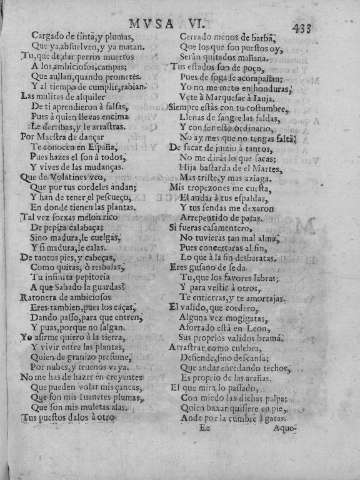 MVSA VI.
433
Cargado de tinta, y plumas,
Que ya absuelven, y ya matan.
Tu, que de dar perros muertos
A los ambiciosos, campas;
Que aullan, quando prometes.
Y al tiempo de cumplir, rabian.
Las mulitas de alquiler
De ti aprendieron à falsas,
Pues à quien llevas encima
Le derribas, y le arrastras.
Por Maestra de dançar
Te conocen en España,
Pues hazes el son à todos,
Y vives de las mudanças.
Que de Volatines veo,
Que por tus cordeles andan;
Y han de tener el pescueço,
En donde tienen las plantas.
Tal vez forxas melon rico
De pepita calabaça;
Sino madura, le cuelgas,
Y si madura, le calas.
De tantos pies, y cabeças,
Como quitas, ò resbalas,
Tu infinita pepitoria
A que Sabado la guardas?
Ratonera de ambiciosos
Eres tambien, pues los caças,
Dando passo, para que entren,
Y puas, porque no salgan.
Yo afirme quiero à la tierra,
Y vivir entre las plantas,
Quien de granizo presume,
Por nubes, y truenos vaya.
No me has de hazer en creyentes
Que pueden volar mis çancas,
Que son mis juanetes plumas,
Que son mis muletas alas.
Tus puestos dalos à otro
Cerrado menos de barba,
Que los que son puestos oy,
Seràn quitados mañana.
Tus estados son de poço,
Pues de soga se acompañan;
Yo no me meto en honduras,
Vete à Marquesar à Jauja.
Siempre estàs con tu costumbre,
Llenas de sangre las faldas,
Y con ser esto ordinario,
No ay mes que no tengas falta,
De sacar de juizio à tantos,
No me diràs lo que sacas;
Hija bastarda de el Martes,
Mas triste, y mas aziaga.
Mis tropezones me cuesta,
El andar à tus espaldas,
Y tus sendas me dexaron
Arrepentido de passas.
Si fueras casamentero,
No tuvieras tan mal alma,
Pues conciertas al fin,
Lo que à la fin desbaratas.
Eres gusano de seda
Tu, que los favores labras;
Y para vestir à otros,
Te entierras, y te amortajas.
El valido, que cordero,
Alguna vez mogigatas,
Aforrado està en Leon,
Sus propios validos brama.
Arrastrar como culebra,
Desiende, sino descansa;
Que andar enredando techos,
Es propio de las arañas.
El que mira lo passado,
Con miedo las dichas palpa;
Quien baxar quisiere en pie,
Ande por la cumbre à gatas.
Ee
Aquo-